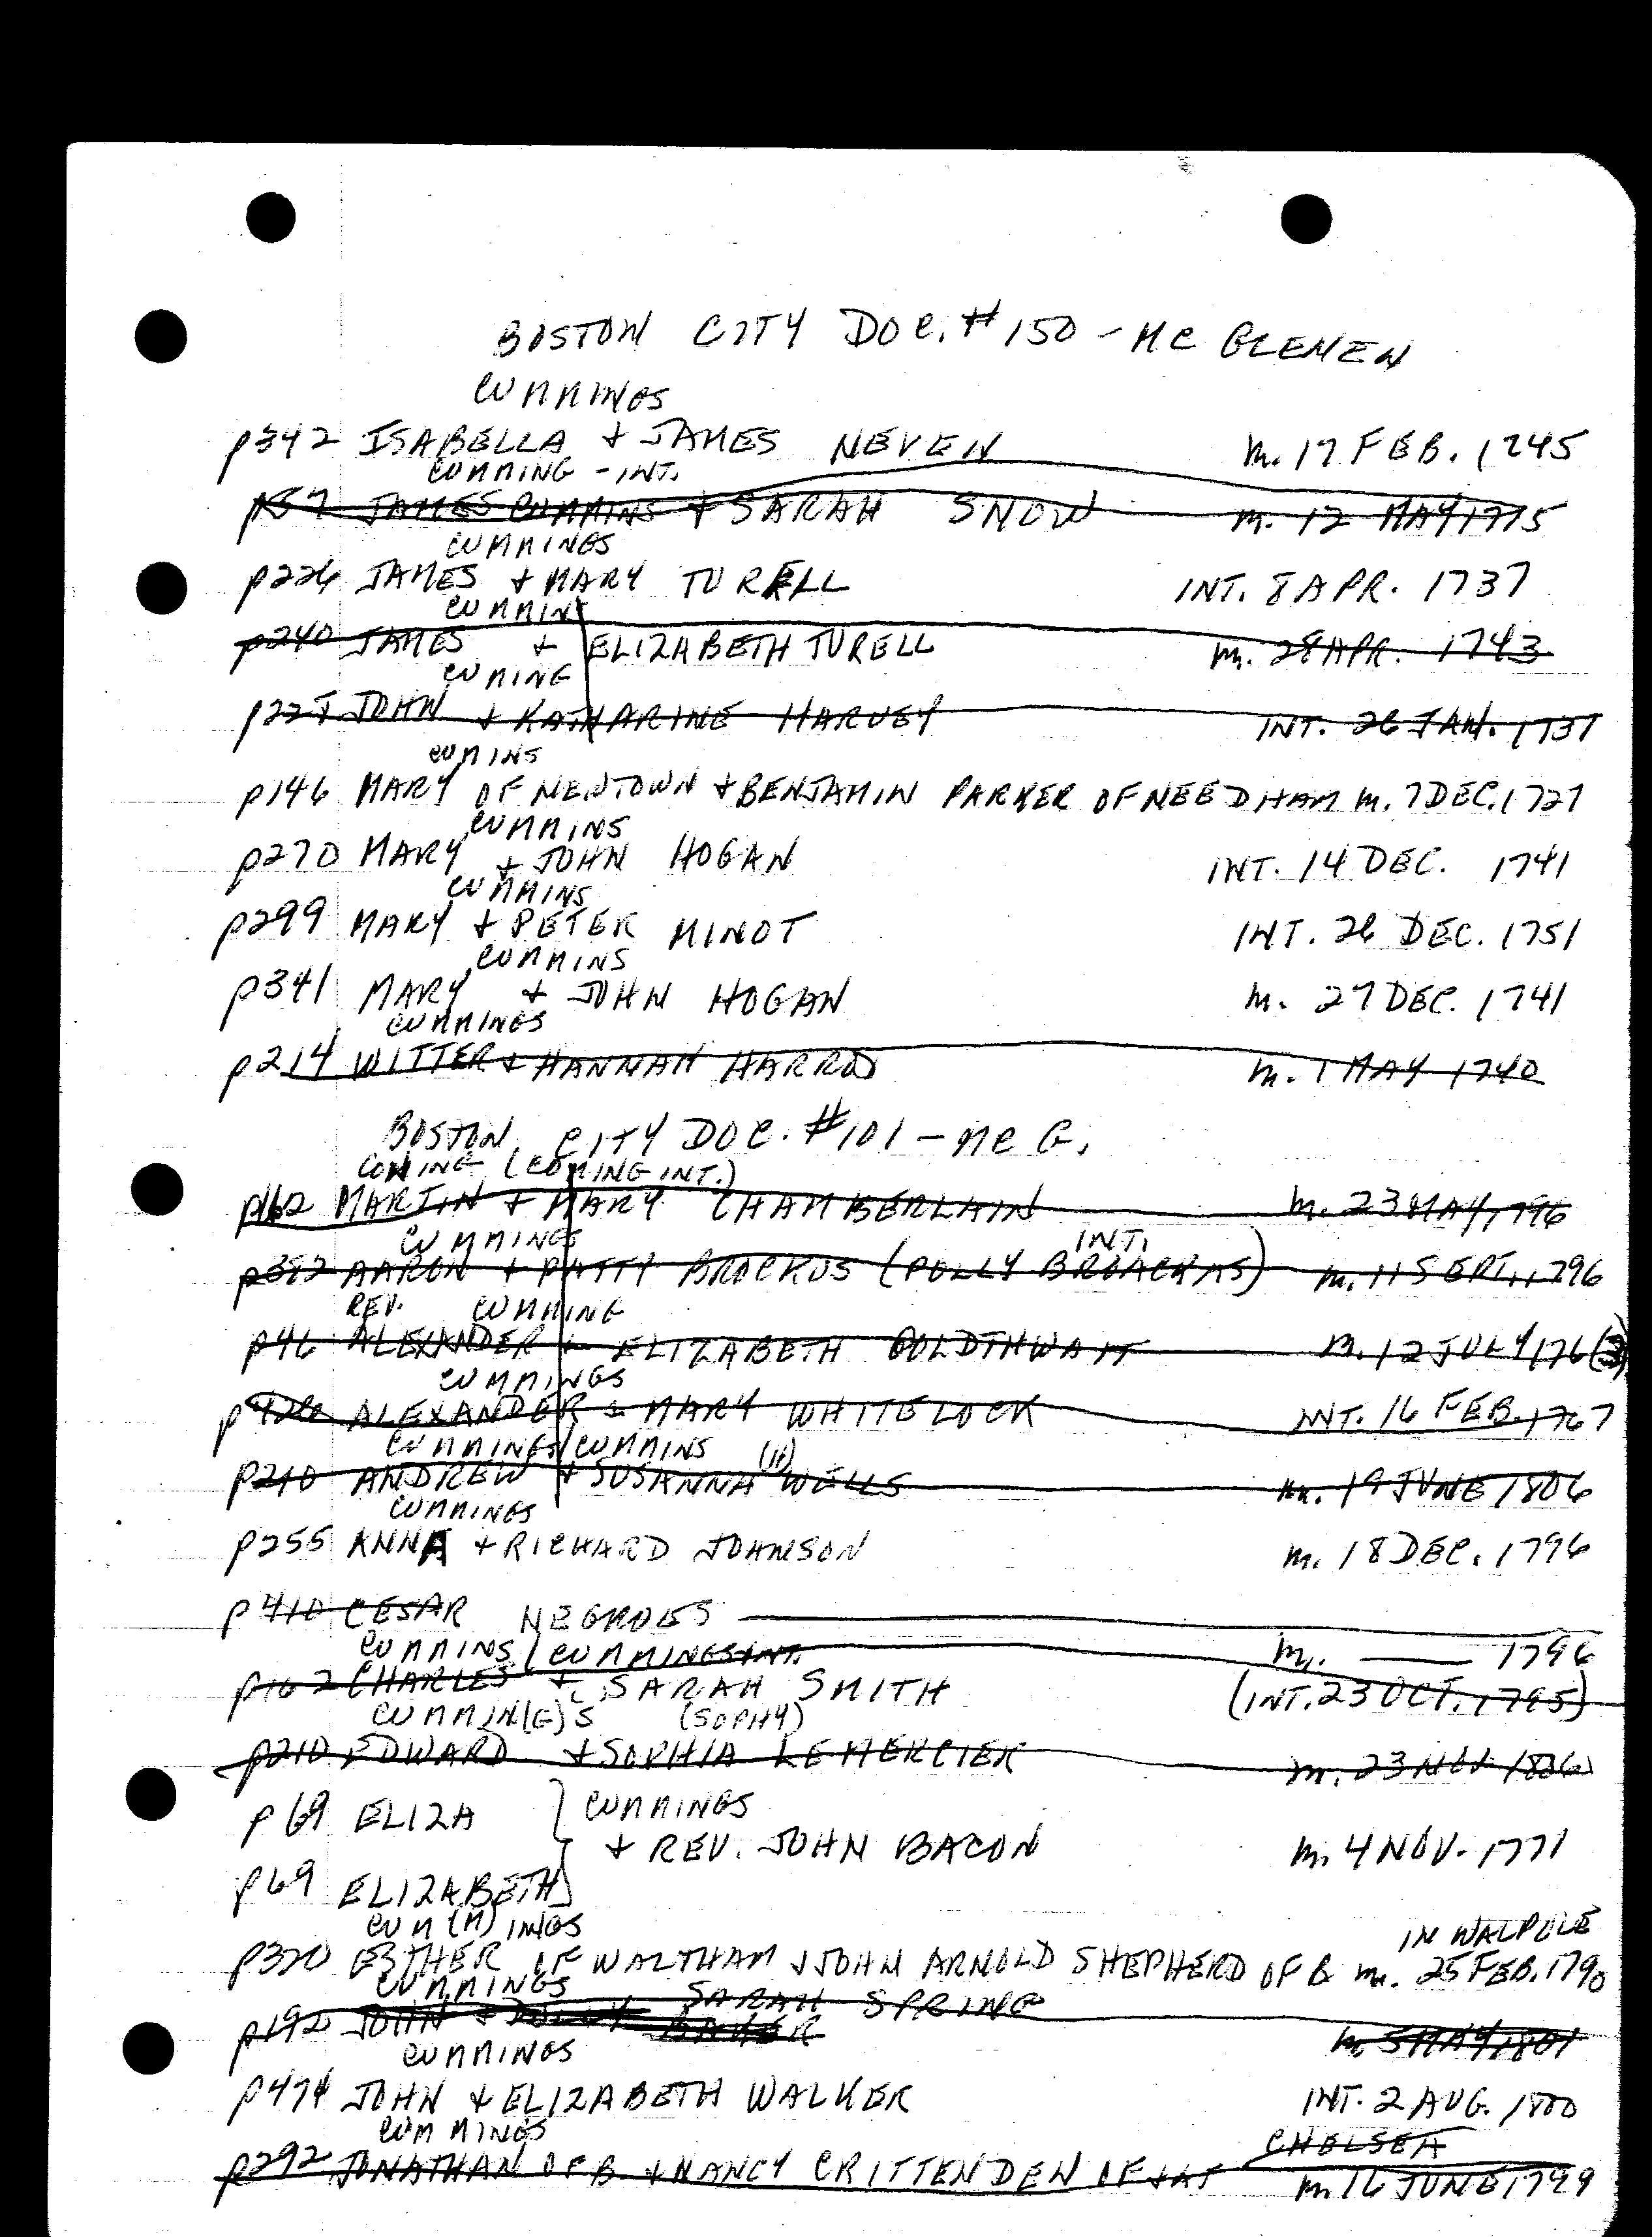 BOSTON CITY DOC. #150 - MC GLENEN
CUMMINGS
p342 ISABELLA + JAMES NEVEN m. 17 FEB. 1745
CUMMING - INT.
p57 JAMES CUMMINS + SARAH SNOW m. 12 MAY 1775
CUMMINGS
p226 JAMES + MARY TURELL INT. 8 APR. 1737
CUMMING
p240 JAMES + ELIZABETH TURELL m. 28 APR. 1743
CUMING
JOHN + KATHARINE HARVEY INT. 26 JAN. 1737
CUMINS
p146 MARY OF NEWTOWN + BENJAMIN PARKER OF NEEDHAM m. 7 DEC. 1727
CUMMINS
p270 MARY + JOHN HOGAN INT. 14 DEC. 1741
CUMMINS
p299 MARY + PETER MINOT INT. 26 DEC. 1751
CUMMINS
p341 MARY + JOHN HOGAN m. 27 DEC. 1741
CUMMINGS
p214 WITTER + HANNAH HARROD m. 1 MAY 1740
BOSTON CITY DOC. #101 - MC G.
COMING (COMING INT.)
p162 MARTIN + MARY CHAMBERLAIN m. 23 MAY 1796
CUMMINGS INT.
p382 AARON + PATTY BROCKUS (POLLY BROACKAS) m. 11 SEPT. 1796
REV. CUMMING
p46 ALEXANDER + ELIZABETH GOLDTHWAIT m. 12 JULY 176(3)
CUMMINGS
ALEXANDER + MARY WHITELOCK INT. 16 FEB. 1767
CUMMINGS/CUMMINS (H)
p210 ANDREW + SUSANNA WELLS m. 19 JUNE 1806
CUMMINGS
p255 ANNA + RICHARD JOHNSON m. 18 DEC. 1796
p410 CESAR NEGROES
CUMMINS / CUMMINGS INT. m. — 1796
p162 CHARLES + SARAH SMITH (INT. 23 OCT. 1795)
CUMMIN(G)S (SOPHY)
p210 EDWARD + SOPHIA LEMERCIER m. 23 NOV. 1806
p69 ELIZA } CUMMINGS
+ REV. JOHN BACON m. 4 NOV. 1771
p69 ELIZABETH
CUM(M)INGS IN WALPOLE
p320 ESTHER OF WALTHAM + JOHN ARNOLD SHEPHERD OF B m. 25 FEB. 1790
CUMMINGS SARAH SPRING
p192 JOHN + POLLY BAKER m. 5 MAY 1801
CUMMINGS
p474 JOHN + ELIZABETH WALKER INT. 2 AUG. 1800
CUMMINGS CHELSEA
p292 JONATHAN OF B. + NANCY CRITTENDEN OF m. 16 JUNE 1799